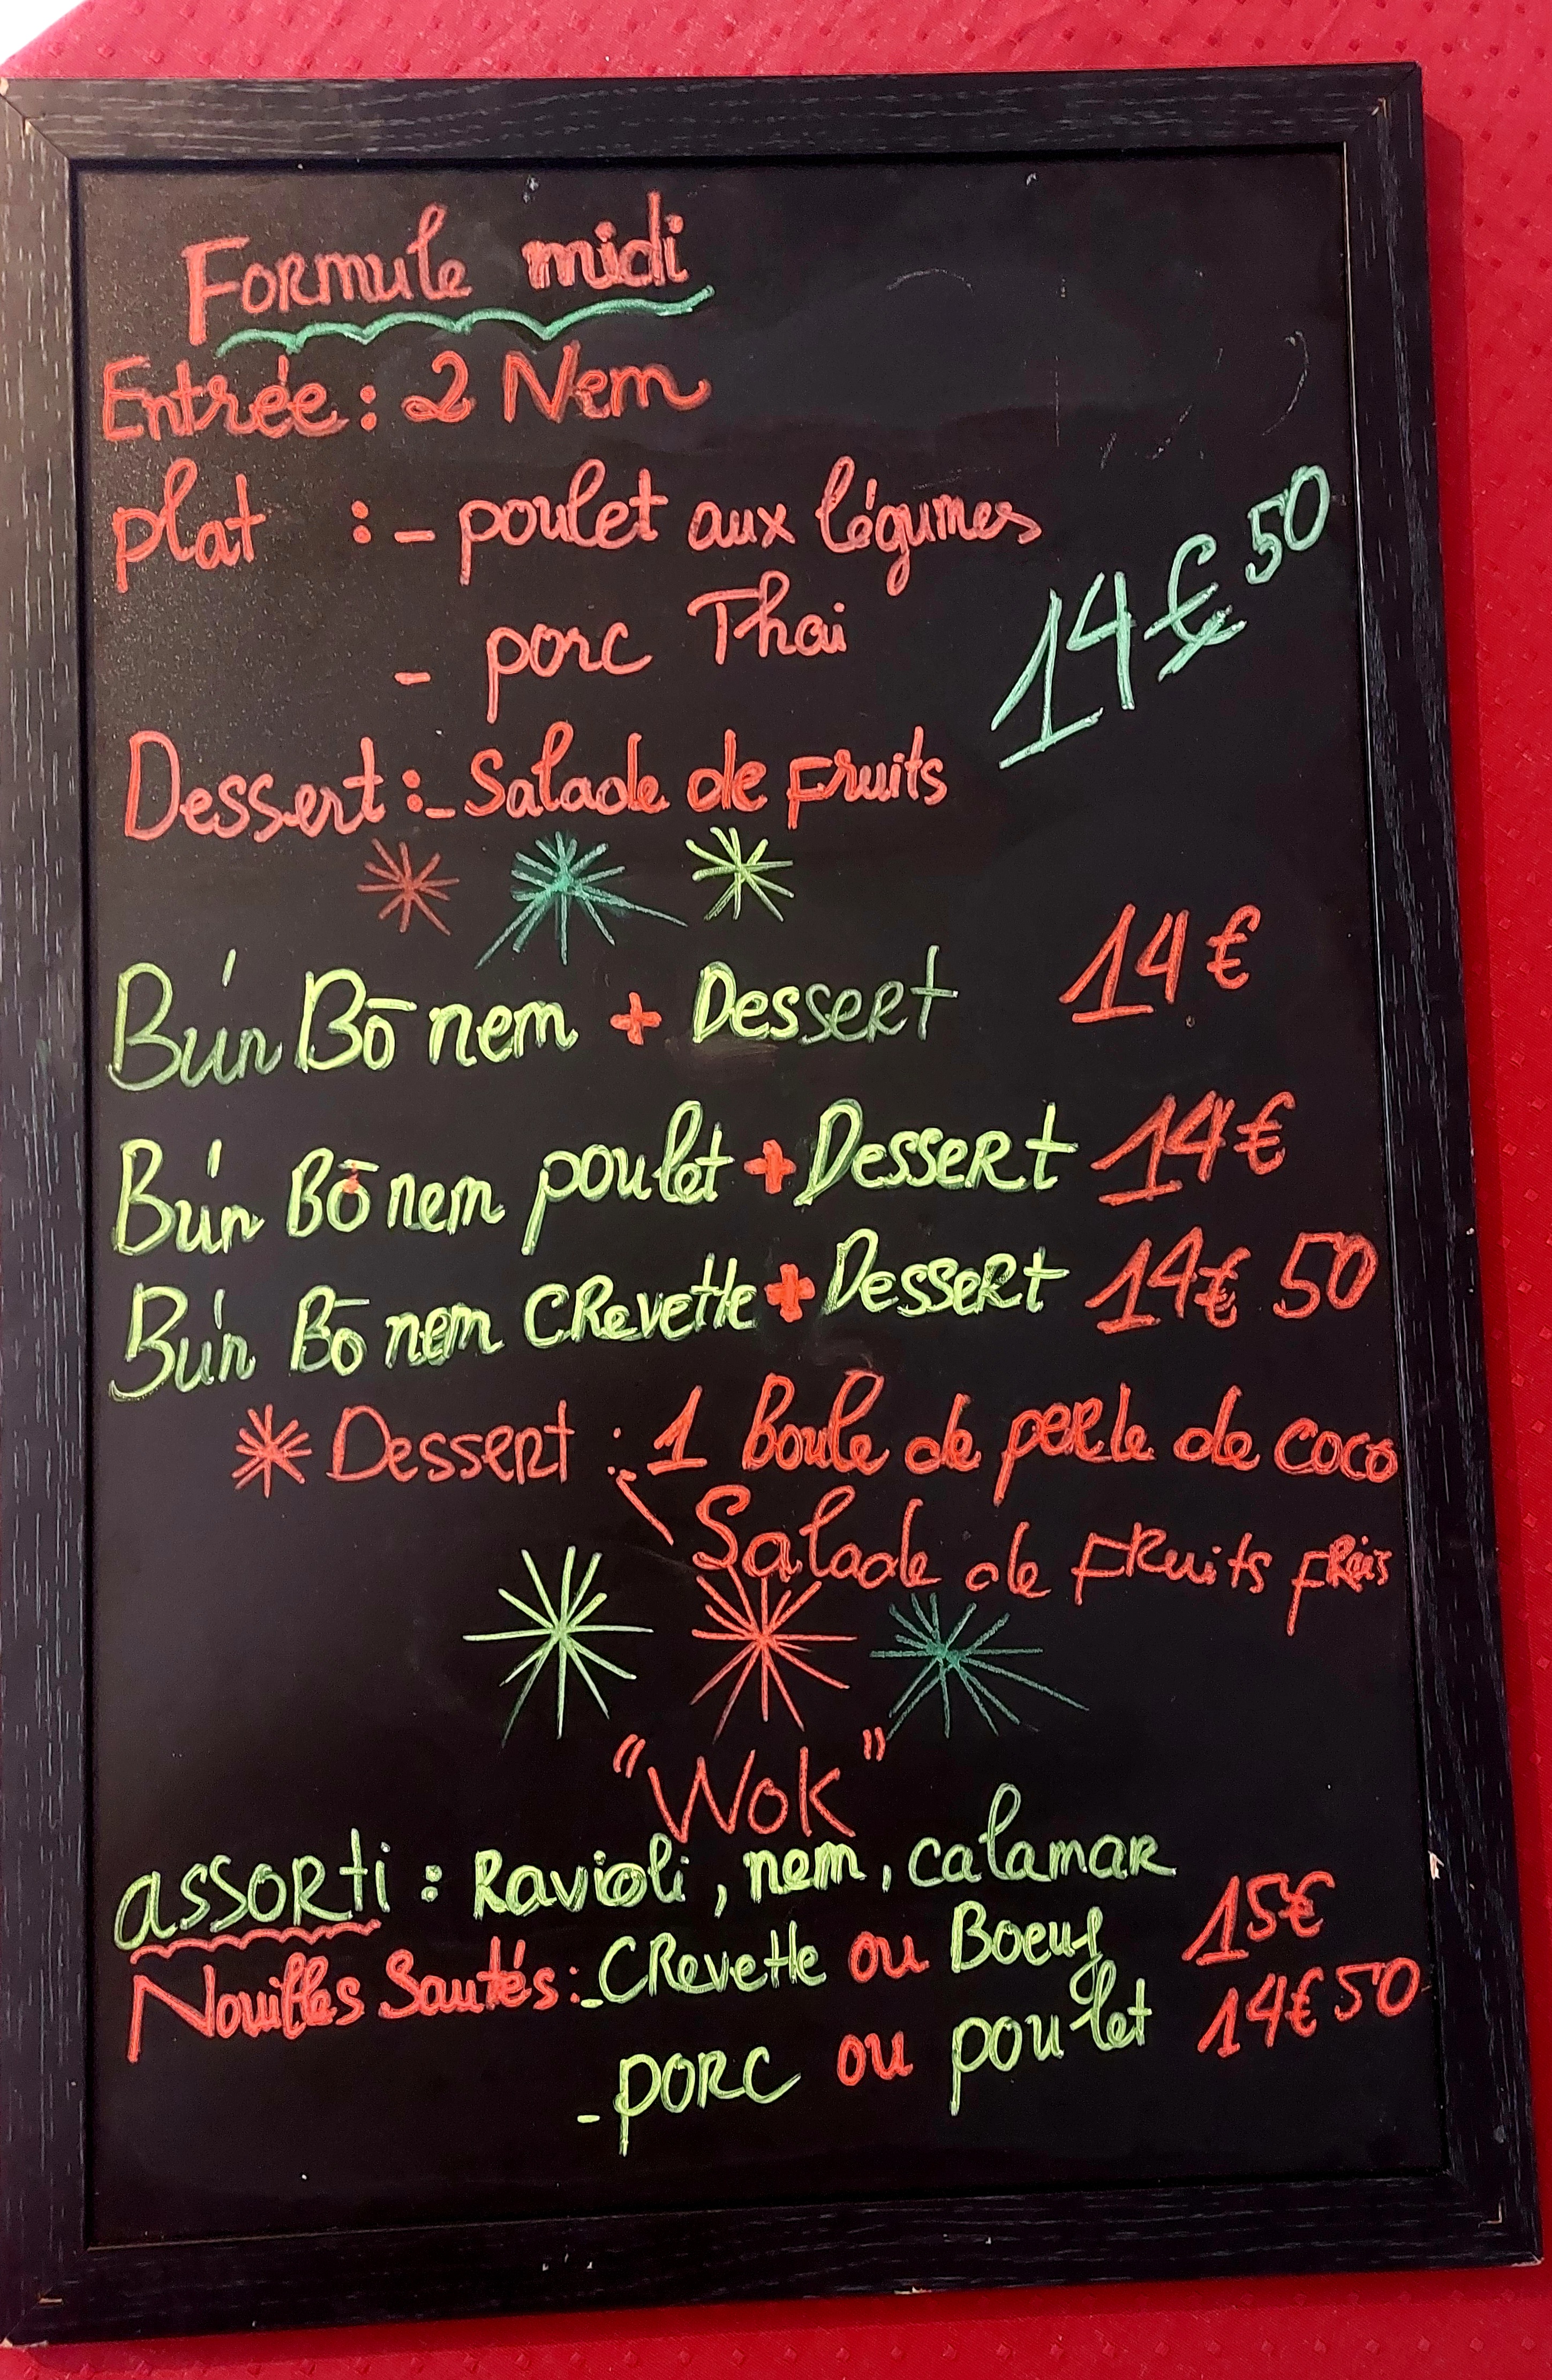 Formule midi
Entrée : 2 Nem
plat : - poulet aux légumes
- porc Thai
14€50
Dessert :- Salade de Fruits
Bún Bō nem + Dessert 14€
Bún Bō nem poulet + Dessert 14€
Bún Bō nem CRevette + Dessert 14€ 50
* Dessert : 1 Boule de perle de coco
Salade de FRuits FRais
"Wok"
assorti : Ravioli, nem, calamar
Nouilles Sautés :- CRevette ou Boeuf 15€
- porc ou poulet 14€50